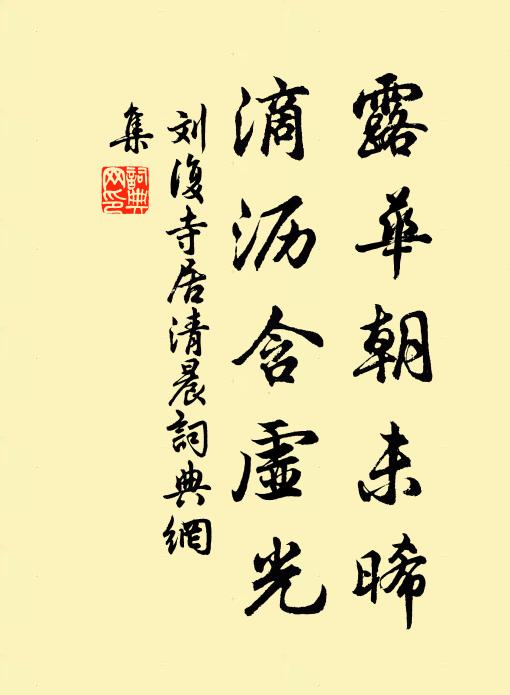 露華朝未晞
滴沥含虛光
刘復寺居清晨詞典網
集
詞典網印